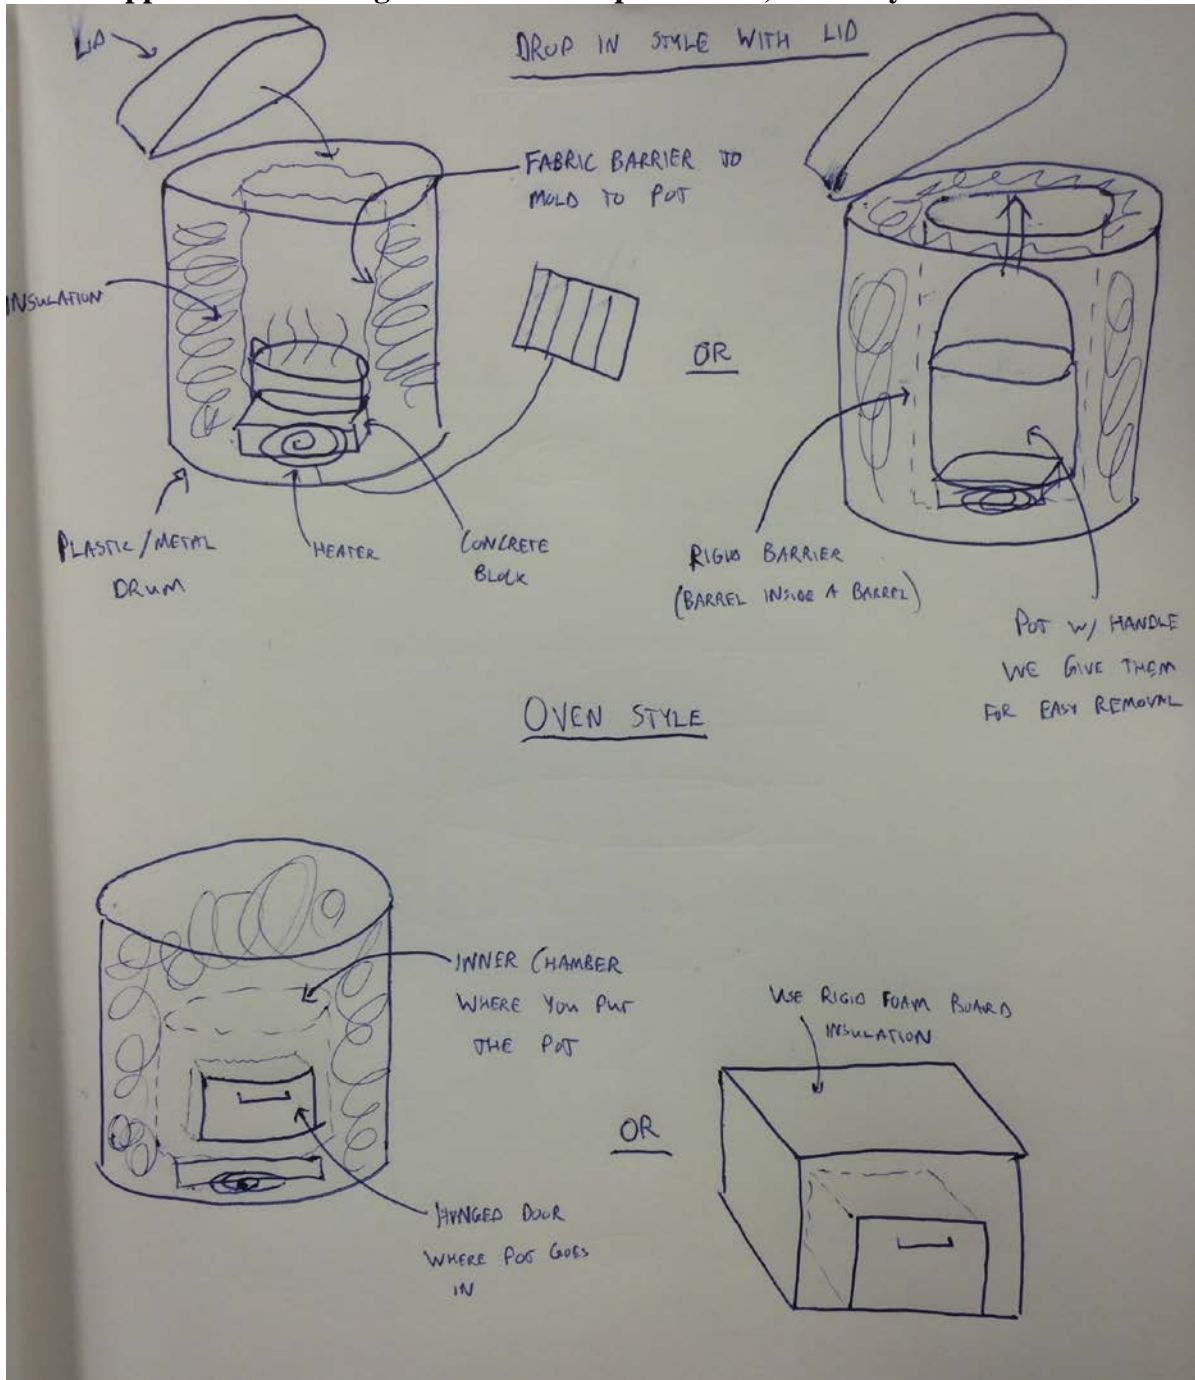 LID
DROP IN STYLE WITH LID
FABRIC BARRIER TO
MOLD TO POT
INSULATION
OR
PLASTIC/METAL
DRUM
HEATER
CONCRETE
BLOCK
RIGID BARRIER
(BARREL INSIDE A BARREL)
POT W/ HANDLE
WE GIVE THEM
FOR EASY REMOVAL
OVEN STYLE
INNER CHAMBER
WHERE YOU PUT
THE POT
USE RIGID FOAM BOARD
INSULATION
OR
HINGED DOOR
WHERE POT GOES
IN